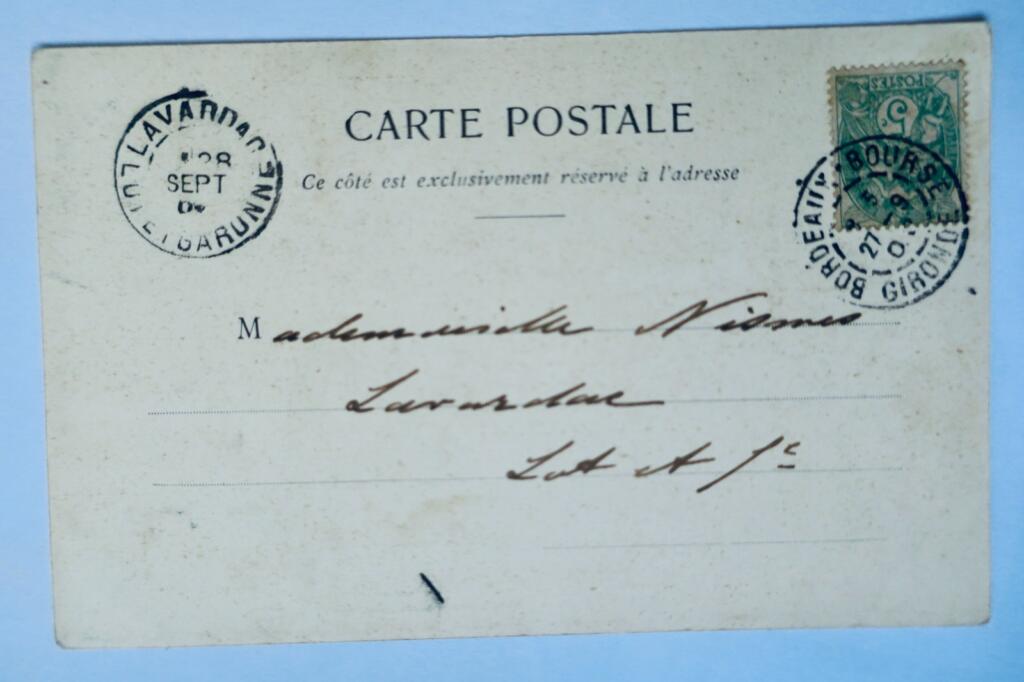 CARTE POSTALE
Ce côté est exclusivement réservé à l'adresse
LAVARDAC
28
SEPT
LOT ET GARONNE
POSTES
5
BORDEAUX BOURSE
27 9
GIRONDE
Mademoiselle Nismes
Lavardac
Lot et Gᵉ